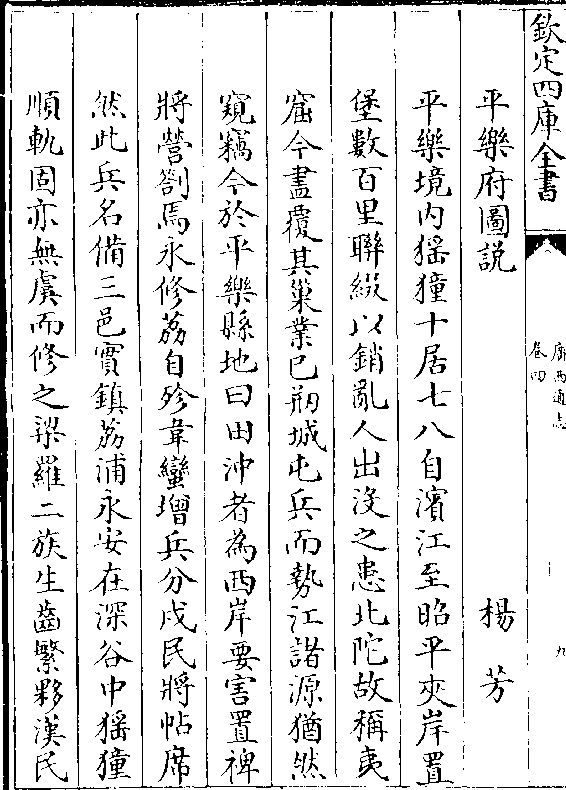 欽定四庫全書
廣西通志
卷四
九
平樂府圖說
楊芳
平樂境内猺獞十居七八自濵江至昭平夾岸置
堡數百里聯綴以銷亂人出没之患北陀故稱夷
窟今盡覆其巢業已剏城屯兵而勢江諸源猶然
窺竊今於平樂縣地曰田沖者為西岸要害置禆
將營劄焉永修荔自殄韋蠻增兵分戍民將帖席
然此兵名備三邑實鎮荔浦永安在深谷中猺獞
順軌固亦無虞而修之梁羅二族生齒繁夥漢民